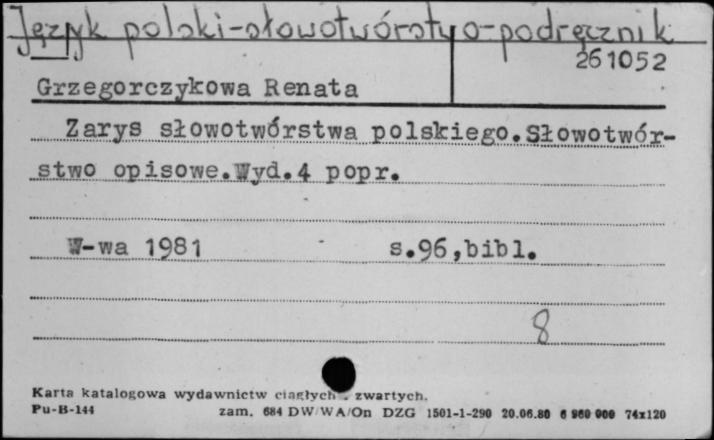 Język polski-słowotwórstwo-podręcznik
261052
Grzegorczykowa Renata
Zarys słowotwórstwa polskiego.Słowotwór-
stwo opisowe.Wyd.4 popr.
W-wa 1981 s.96,bibl.
8
Karta katalogowa wydawnictw ciągłych zwartych.
Pu-B-144 zam. 684 DW/WA/On DZG 1501-1-290 20.06.80 6 960 000 74x120